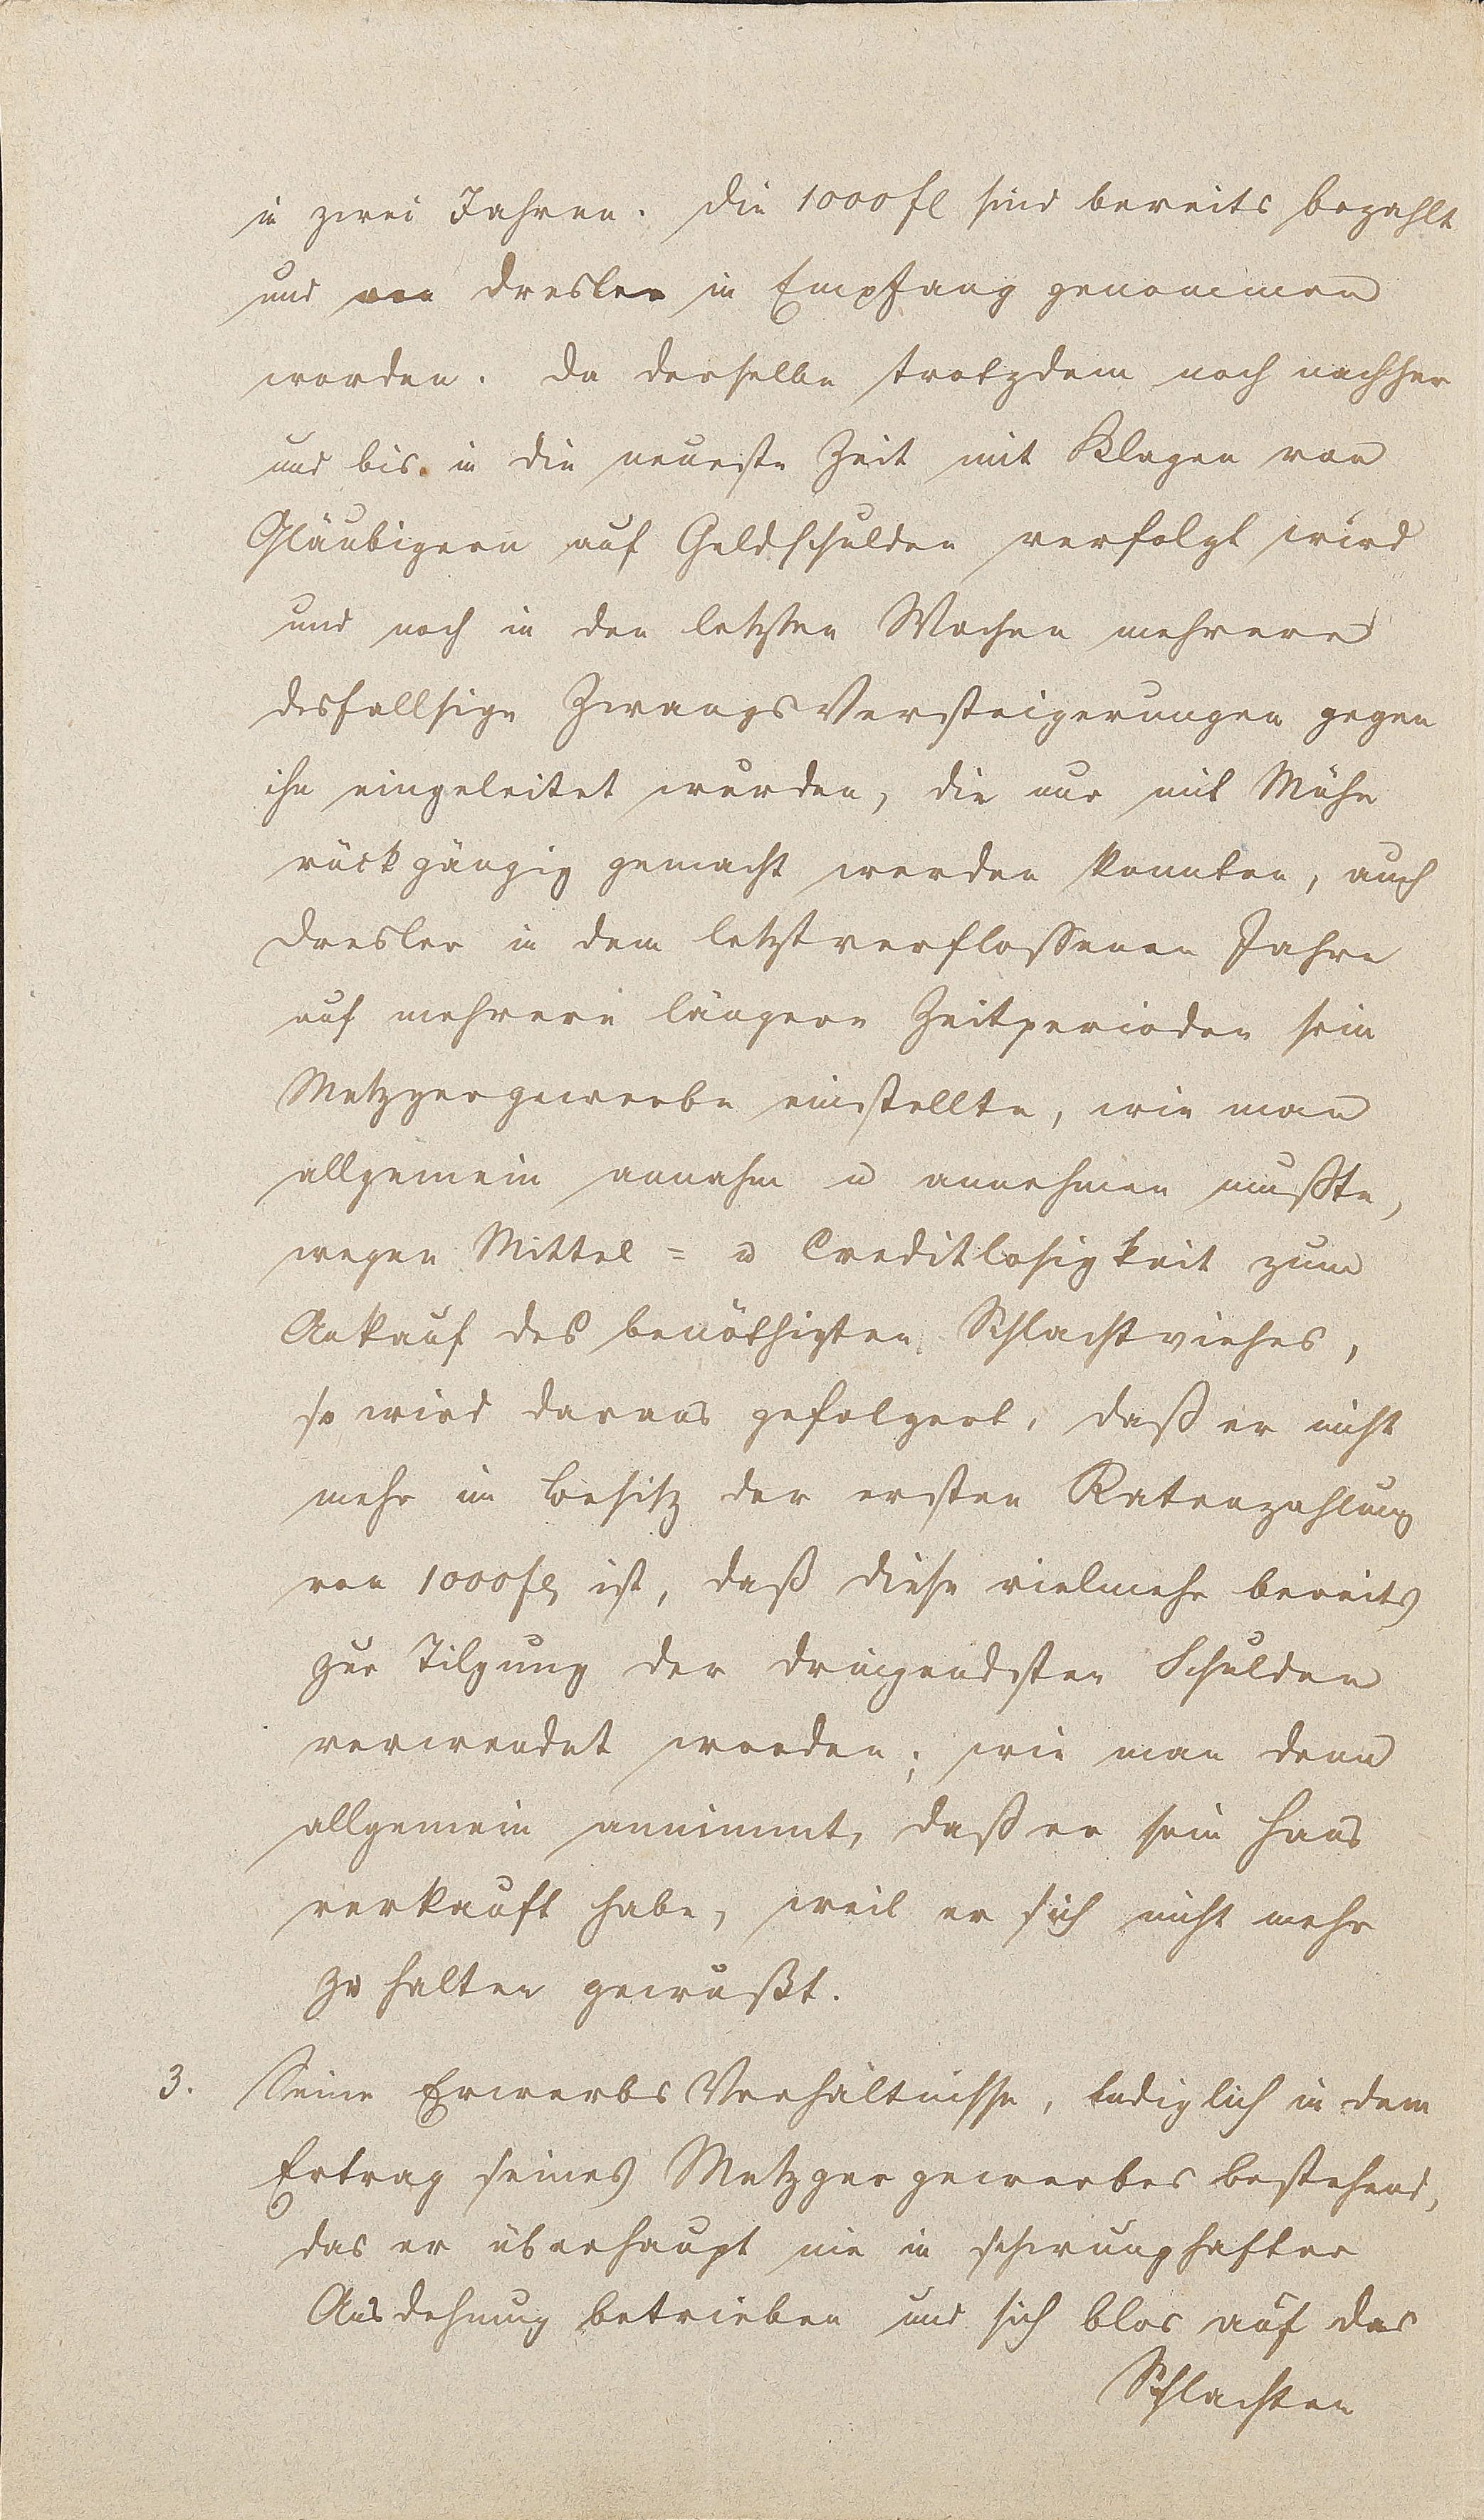 in zwei Jahren. Die 1000 fl sind bereits bezahlt
und von Dresler in Empfang genommen
worden. Da derselbe trotzdem noch nachher
und bis in die neueste Zeit mit Klagen von
Gläubigern auf Geldschulden verfolgt wird
und noch in den letzten Wochen mehrere
desfallsige Zwangs Versteigerungen gegen
ihn eingeleitet wurden, die nur mit Mühe
rückgängig gemacht werden konnten, auch
Dresler in dem letztverflossenen Jahre
auf mehrere längere Zeitperioden sein
Metzgergewerbe einstellte, wie man
allgemein annahm u annehmen mußte,
wegen Mittel = u Creditlosigkeit zum
Ankauf des benöthigten Schlachtviehes,
so wird daraus gefolgert, daß er nicht
mehr im Besitz der ersten Ratenzahlung
von 1000 fl ist, daß diese vielmehr bereits
zur Tilgung der dringendsten Schulden
verwendet worden; wie man denn
allgemein annimmt, daß er sein Haus
verkauft habe, weil er sich nicht mehr
zu halten gewußt.
3. Seine Erwerbs Verhältnisse, lediglich in dem
Ertrag seines Metzgergewerbes bestehend,
das er überhaupt nie in schwunghafter
Ausdehnung betrieben und sich blos auf das
Schlachten